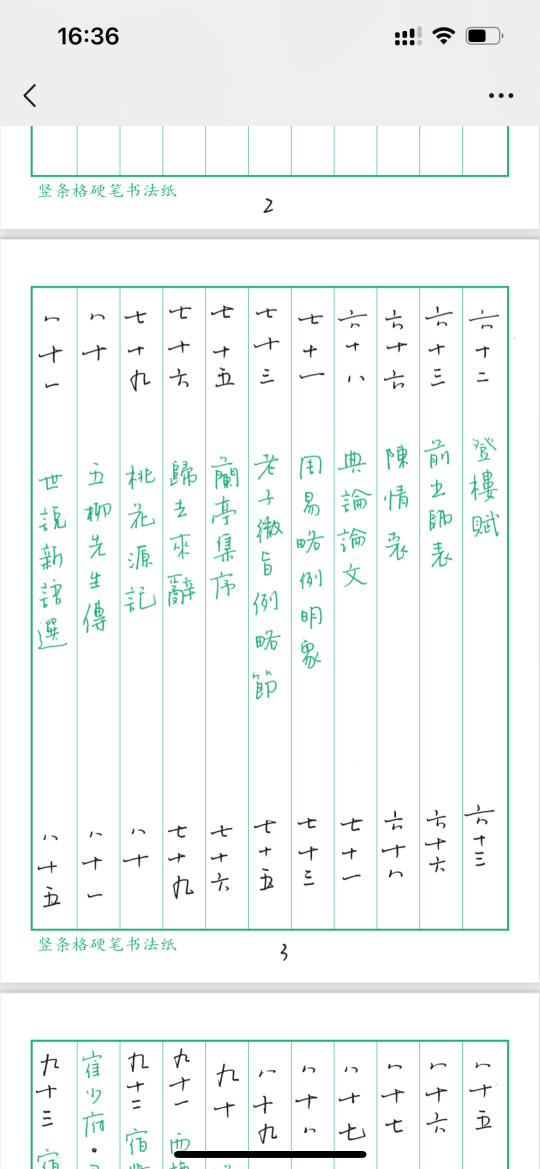 16:36
竖条格硬笔书法纸
2
六十二 登樓賦 六十三
六十三 前出師表 六十六
六十六 陳情表 六十八
六十八 典論論文 七十一
七十一 周易略例明象 七十三
七十三 老子微旨例略節 七十五
七十五 蘭亭集序 七十六
七十六 歸去來辭 七十九
七十九 桃花源記 八十
八十 五柳先生傳 八十一
八十一 世說新語選 八十五
竖条格硬笔书法纸
3
八十五
八十六
八十七
八十七
八十八
八十九
九十
九十一 西
九十二 宿
崔少府·
九十三 宿